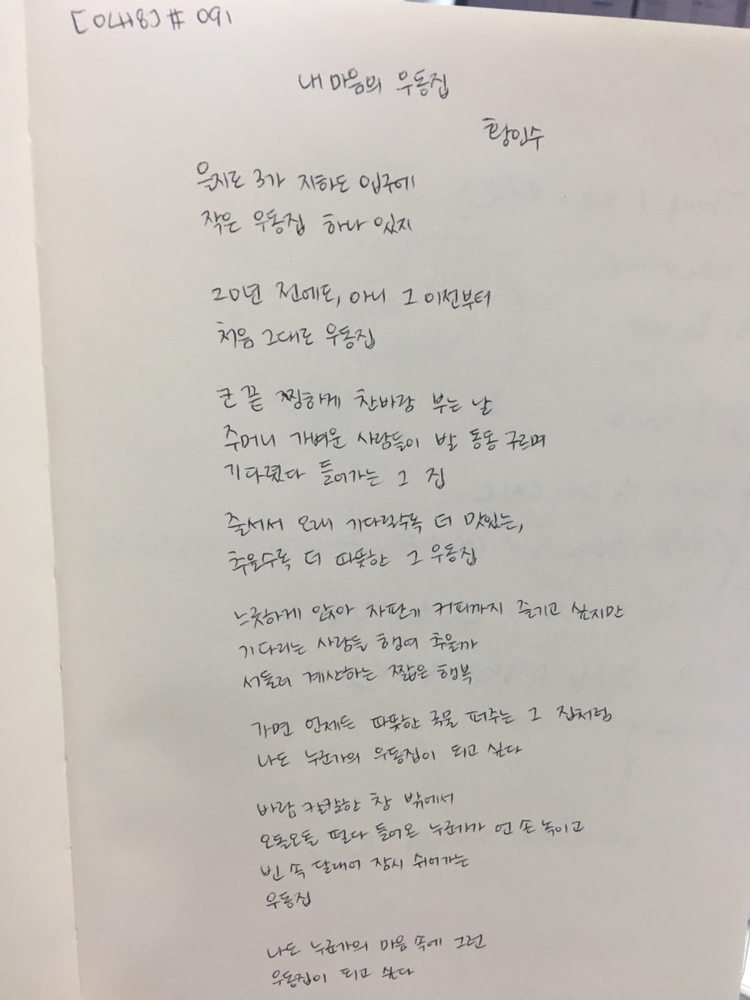 [0LH8] # 091
내 마음의 우동집
황인수
을지로 3가 지하도 입구에
작은 우동집 하나 있지
20년 전에도, 아니 그 이전부터
처음 그대로 우동집
코 끝 찡하게 찬바람 부는 날
주머니 가벼운 사람들이 발 동동 구르며
기다렸다 들어가는 그 집
줄서서 오래 기다릴수록 더 맛있는,
추울수록 더 따뜻한 그 우동집
느긋하게 앉아 자판기 커피까지 즐기고 싶지만
기다리는 사람들 행여 추울까
서둘러 계산하는 짧은 행복
가면 언제든 따뜻한 국물 퍼주는 그 집처럼
나도 누군가의 우동집이 되고 싶다
바람 칼칼한 창 밖에서
오돌오돌 떨다 들어온 누군가가 언 손 녹이고
빈 속 달래어 잠시 쉬어가는
우동집
나도 누군가의 마음 속에 그런
우동집이 되고 싶다